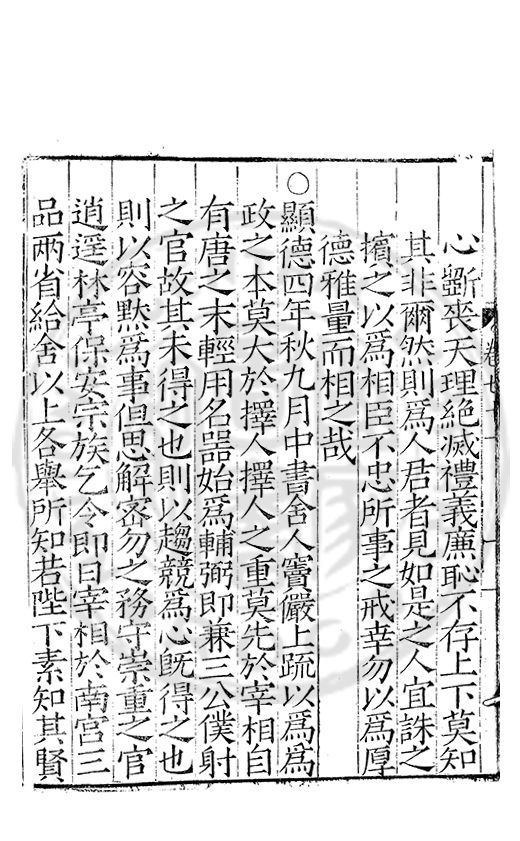 心斵喪天理絶滅禮義廉恥不存上下莫知
其非爾然則爲人君者見如是之人宜誅之
擯之以爲相臣不忠所事之戒幸勿以爲厚
德雅量而相之哉
○顯德四年秋九月中書舍人竇儼上疏以爲爲
政之本莫大於擇人擇人之重莫先於宰相自
有唐之末輕用名噐始爲輔弼即兼三公僕射
之官故其未得之也則以趨競爲心旣得之也
則以容黙爲事但思解宻勿之務守崇重之官
逍遥林亭保安宗族乞令即日宰相於南宫三
品两省給舍以上各舉所知若陛下素知其賢